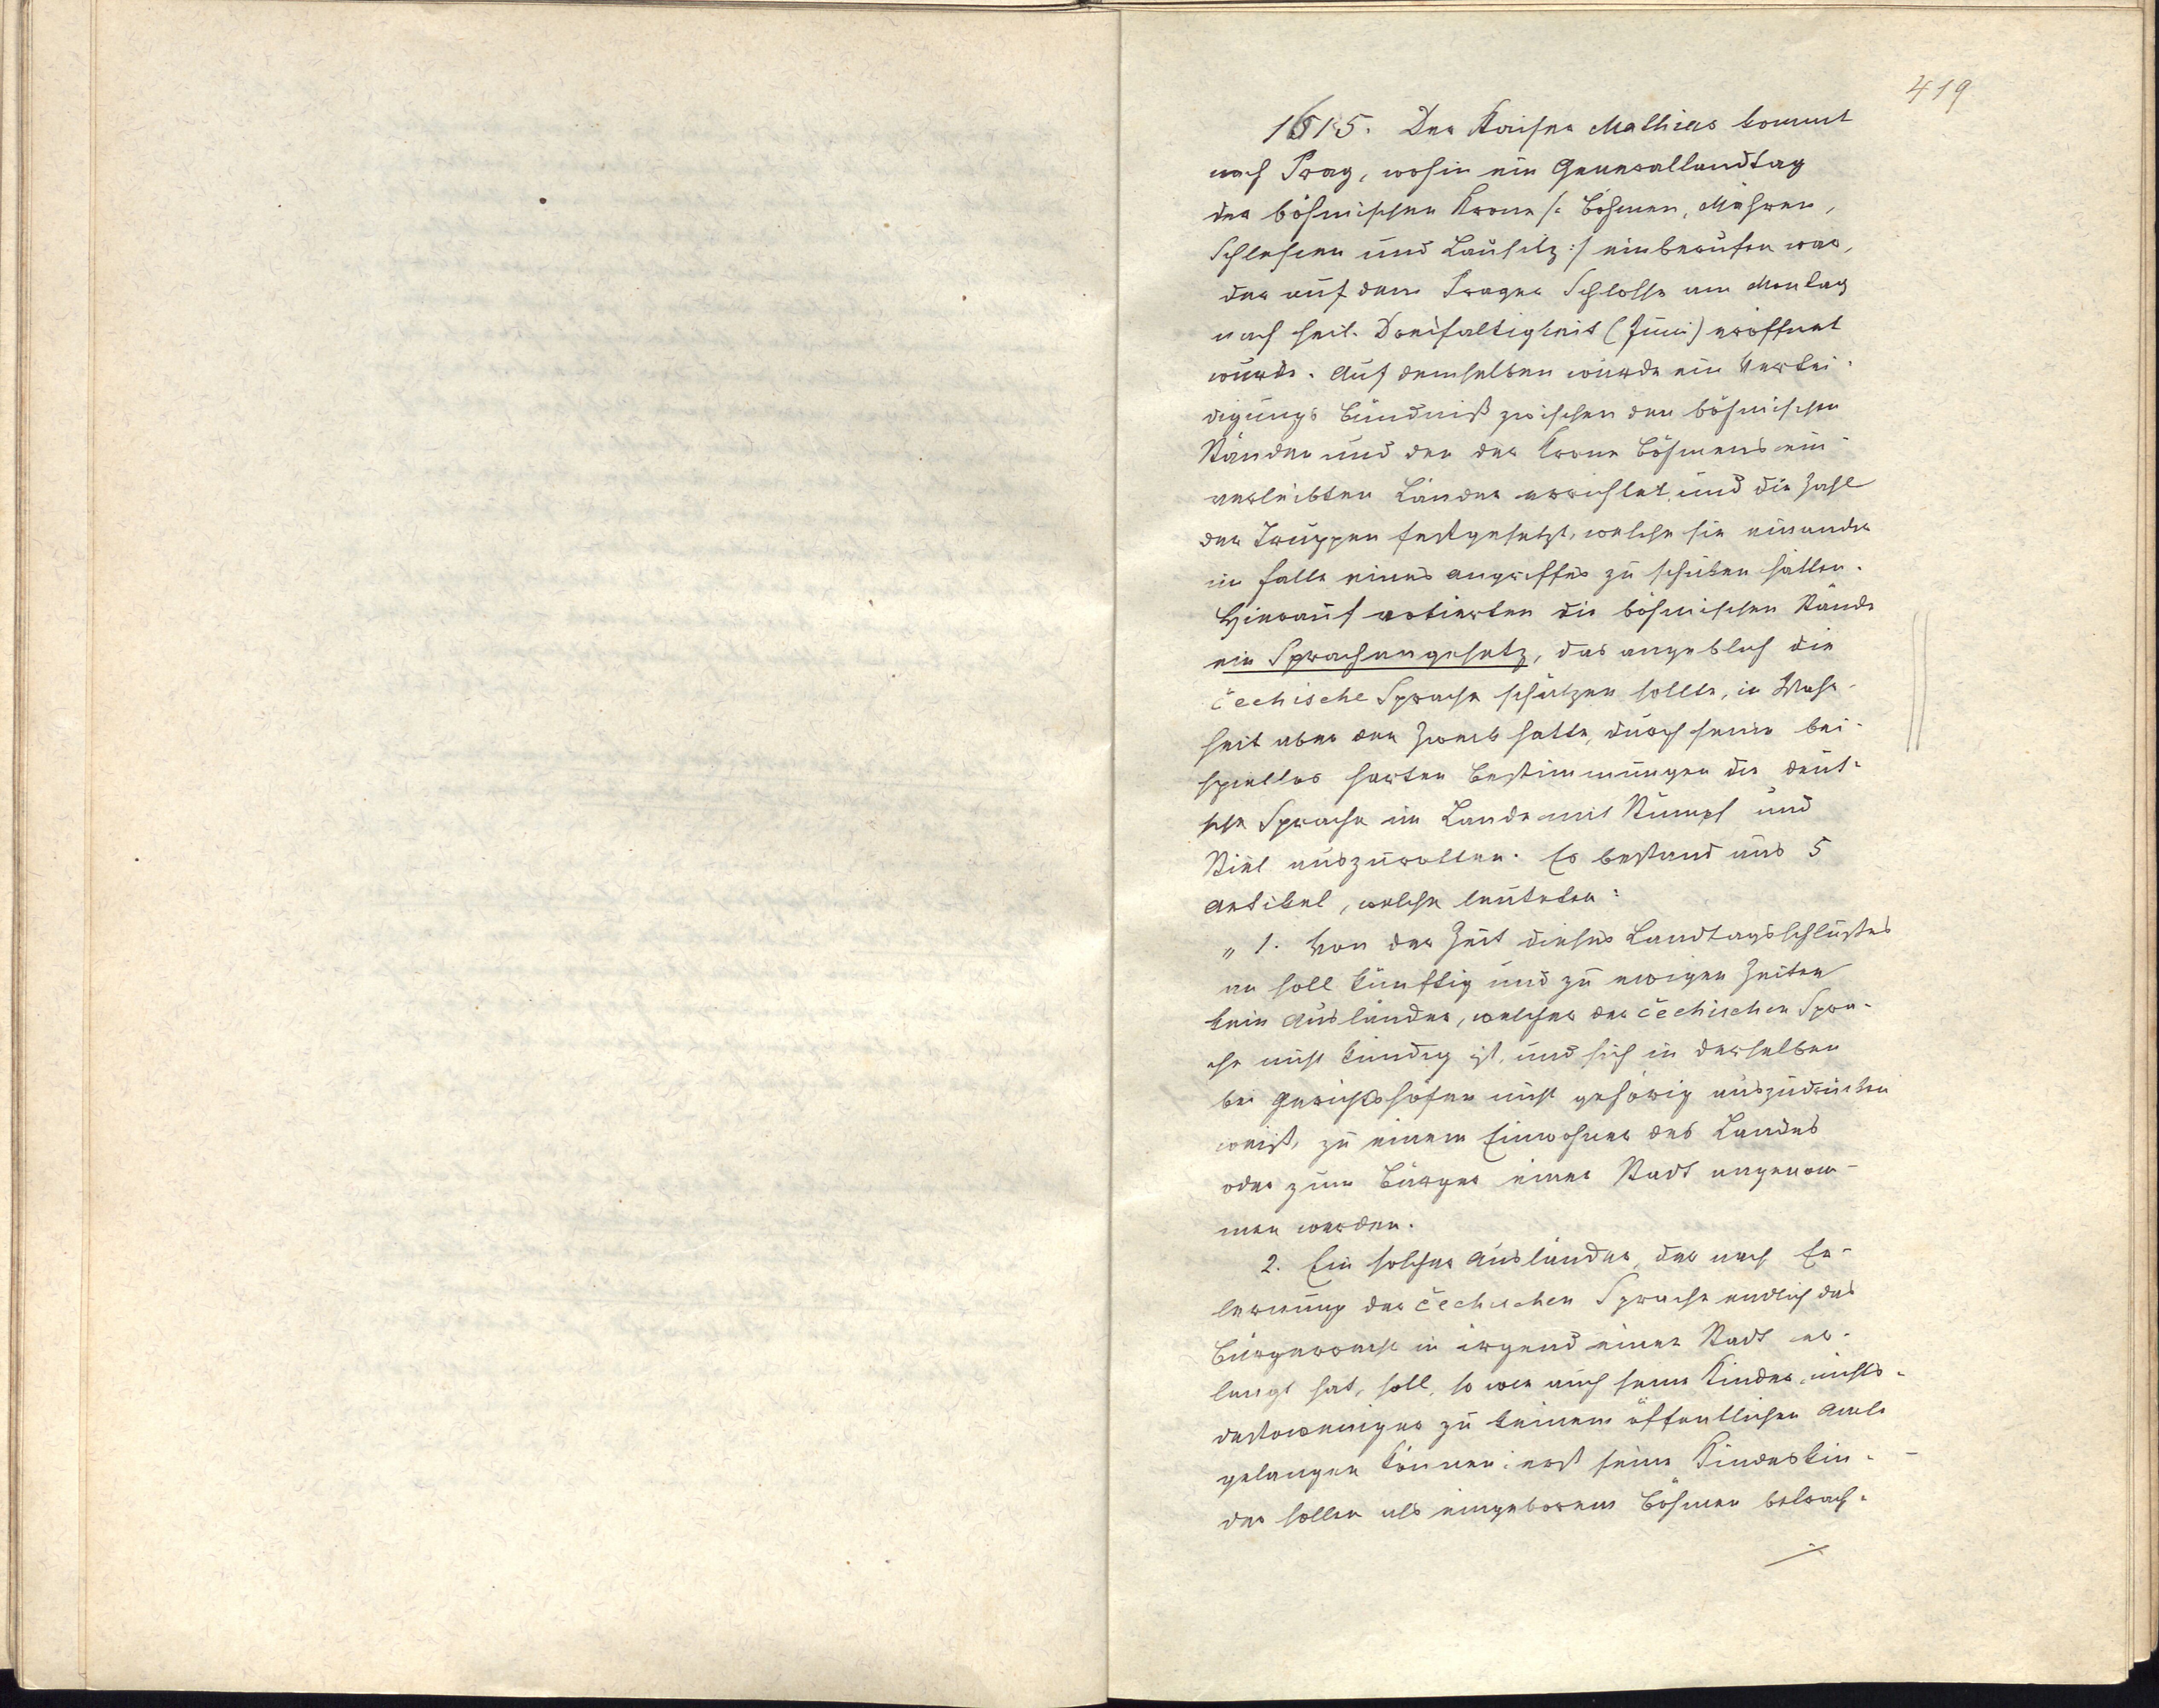 419
1615. Der Kaiser Mathias kommt
nach Prag, wohin ein Generallandtag
der böhmischen Krone /: Böhmen, Mähren,
Schlesien und Lausitz :/ einberufen war,
der auf dem Prager Schlosse am Montag
nach heil. Dreifaltigkeit (Juni) eröffnet
wurde. Auf demselben wurde ein Vertei-
digungs Bündniß zwischen den böhmischen
Ständen und den der Krone Böhmens ein-
verleibten Länder errichtet und die Zahl
der Truppen festgesetzt, welche sie einander
im falle eines angriffes zu schicken hätten.
Hierauf votierten die böhmischen Stände
ein Sprachengesetz, das angeblich die
čechische Sprache schützen sollte, in Wahr-
heit aber den Zweck hatte, durch seine bei-
spiellos harten Bestimmungen die deut-
sche Sprache im Lande mit Stumpf und
Stiel auszurotten. Es bestand aus 5
Artikel, welche lauteten:
„ 1. Von der Zeit dieses Landtagsschlußes
an soll künftig und zu ewigen Zeiten
kein Ausländer, welcher der čechischen Spra-
che nicht kundig ist, und sich in derselben
bei Gerichtshöfen nicht gehörig auszudrücken
weiß, zu einem Einwohner des Landes
oder zum Bürger einer Stadt angenom-
men werden.
2. Ein solcher Ausländer, der nach Er-
lernung der čechischen Sprache endlich das
Bürgerrecht in irgend einer Stadt er-
langt hat, soll, so wie auch seine Kinder, nichts-
destoweniger zu keinem öffentlichen Amte
gelangen können; erst seine Kindeskin-
der sollen als eingeborene Böhmen betrach-